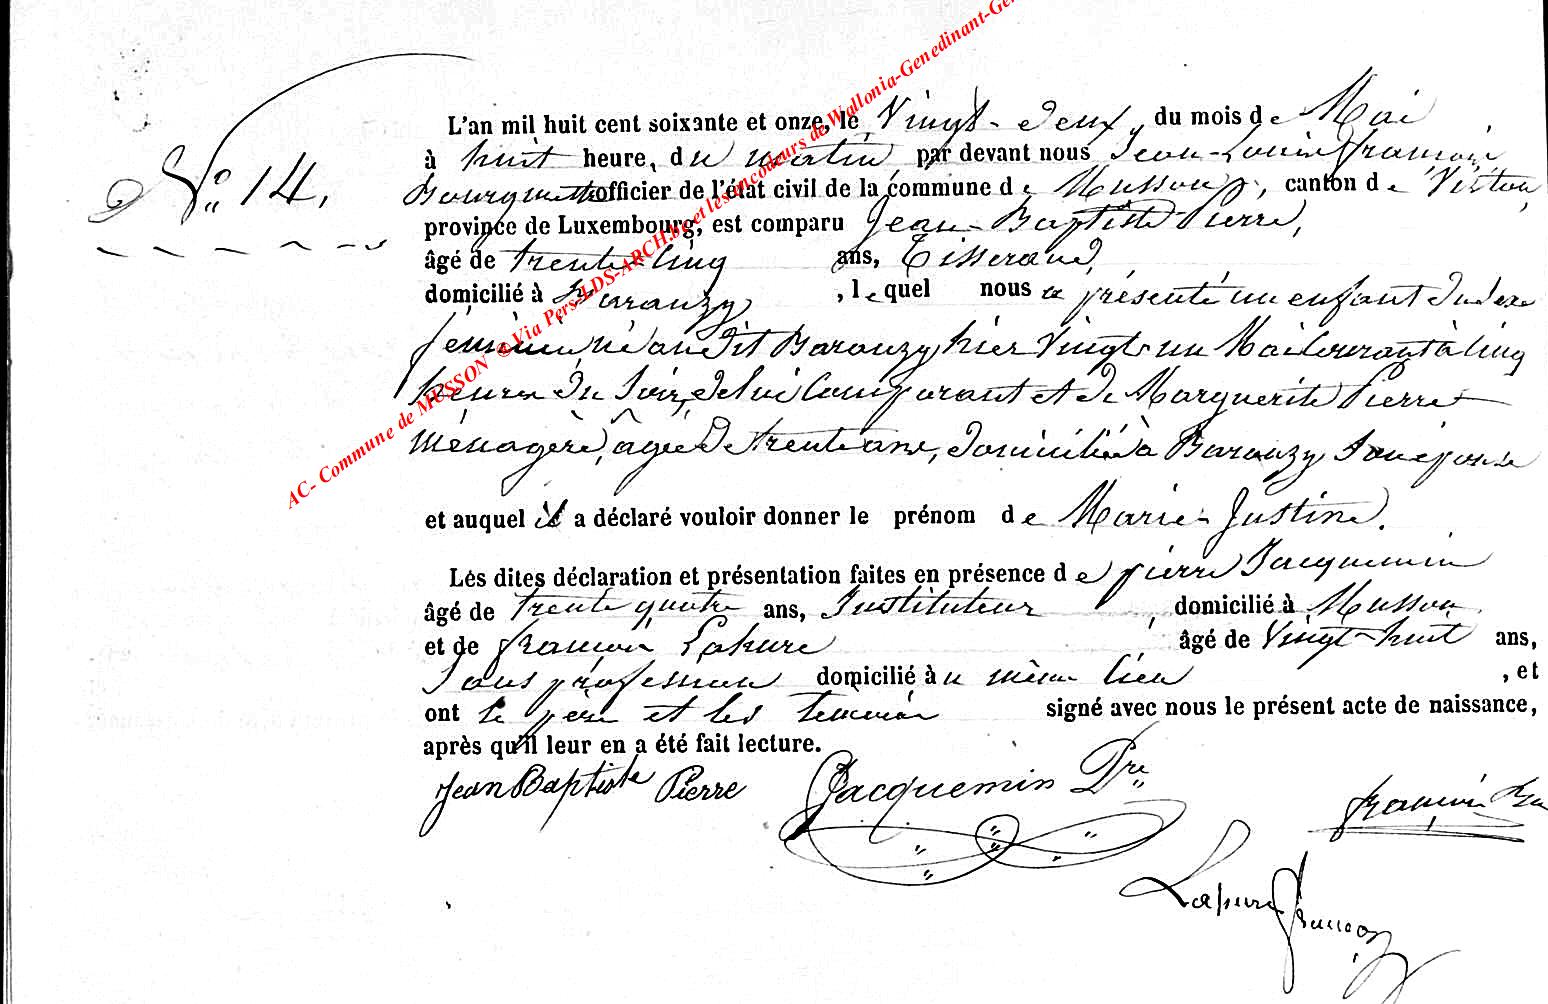 AC- Commune de MUSSON @ Via Pers-LDS-ARCH.be et les encodeurs de Wallonia-Genedinant-Gen
N° 14.
L'an mil huit cent soixante et onze, le Vingt-deux, du mois de Mai
à huit heure, du matin, par devant nous Jean-Louis François
Bourguet officier de l'état civil de la commune de Musson, canton de Virton,
province de Luxembourg, est comparu Jean-Baptiste Pierre,
âgé de trente-cinq ans, Tisserand,
domicilié à Baranzy, lequel nous a présenté un enfant du sexe
féminin, né au dit Baranzy, hier Vingt-un Mai courant à cinq
heures du soir, de lui Comparant et de Marguerite Pierre
ménagère, âgée de trente ans, domiciliée à Baranzy, Son épouse
et auquel il a déclaré vouloir donner le prénom de Marie-Justine.
Les dites déclaration et présentation faites en présence de pierre Jacquemin
âgé de trente quatre ans, Instituteur, domicilié à Musson
et de françois âgé de Vingt-huit ans,
Sans profession domicilié au même lieu, et
ont le père et les témoins signé avec nous le présent acte de naissance,
après qu'il leur en a été fait lecture.
Jean Baptiste Pierre Jacquemin Pre françois
françois